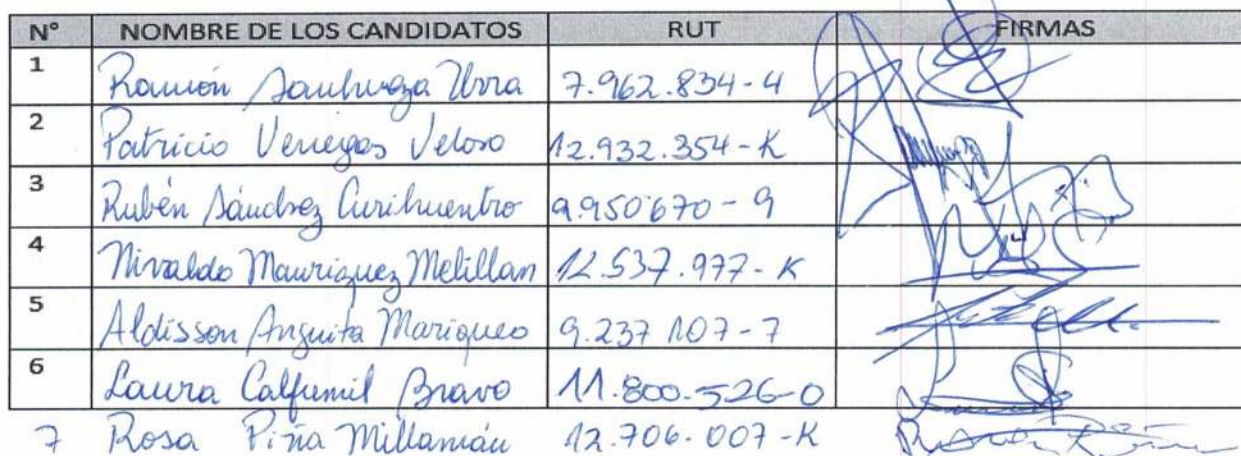 N° NOMBRE DE LOS CANDIDATOS RUT FIRMAS
1 Ramón Sanhueza Urra 7.962.834-4
2 Patricio Venegas Veloso 12.932.354-K
3 Rubén Sánchez Curihuentro 9.950.670-9
4 Nivaldo Mauriquez Melillan 12.537.977-K
5 Aldisson Anguita Mariqueo 9.237.107-7
6 Laura Calfumil Bravo 11.800.526-0
7 Rosa Piña Millamán 12.706.007-K